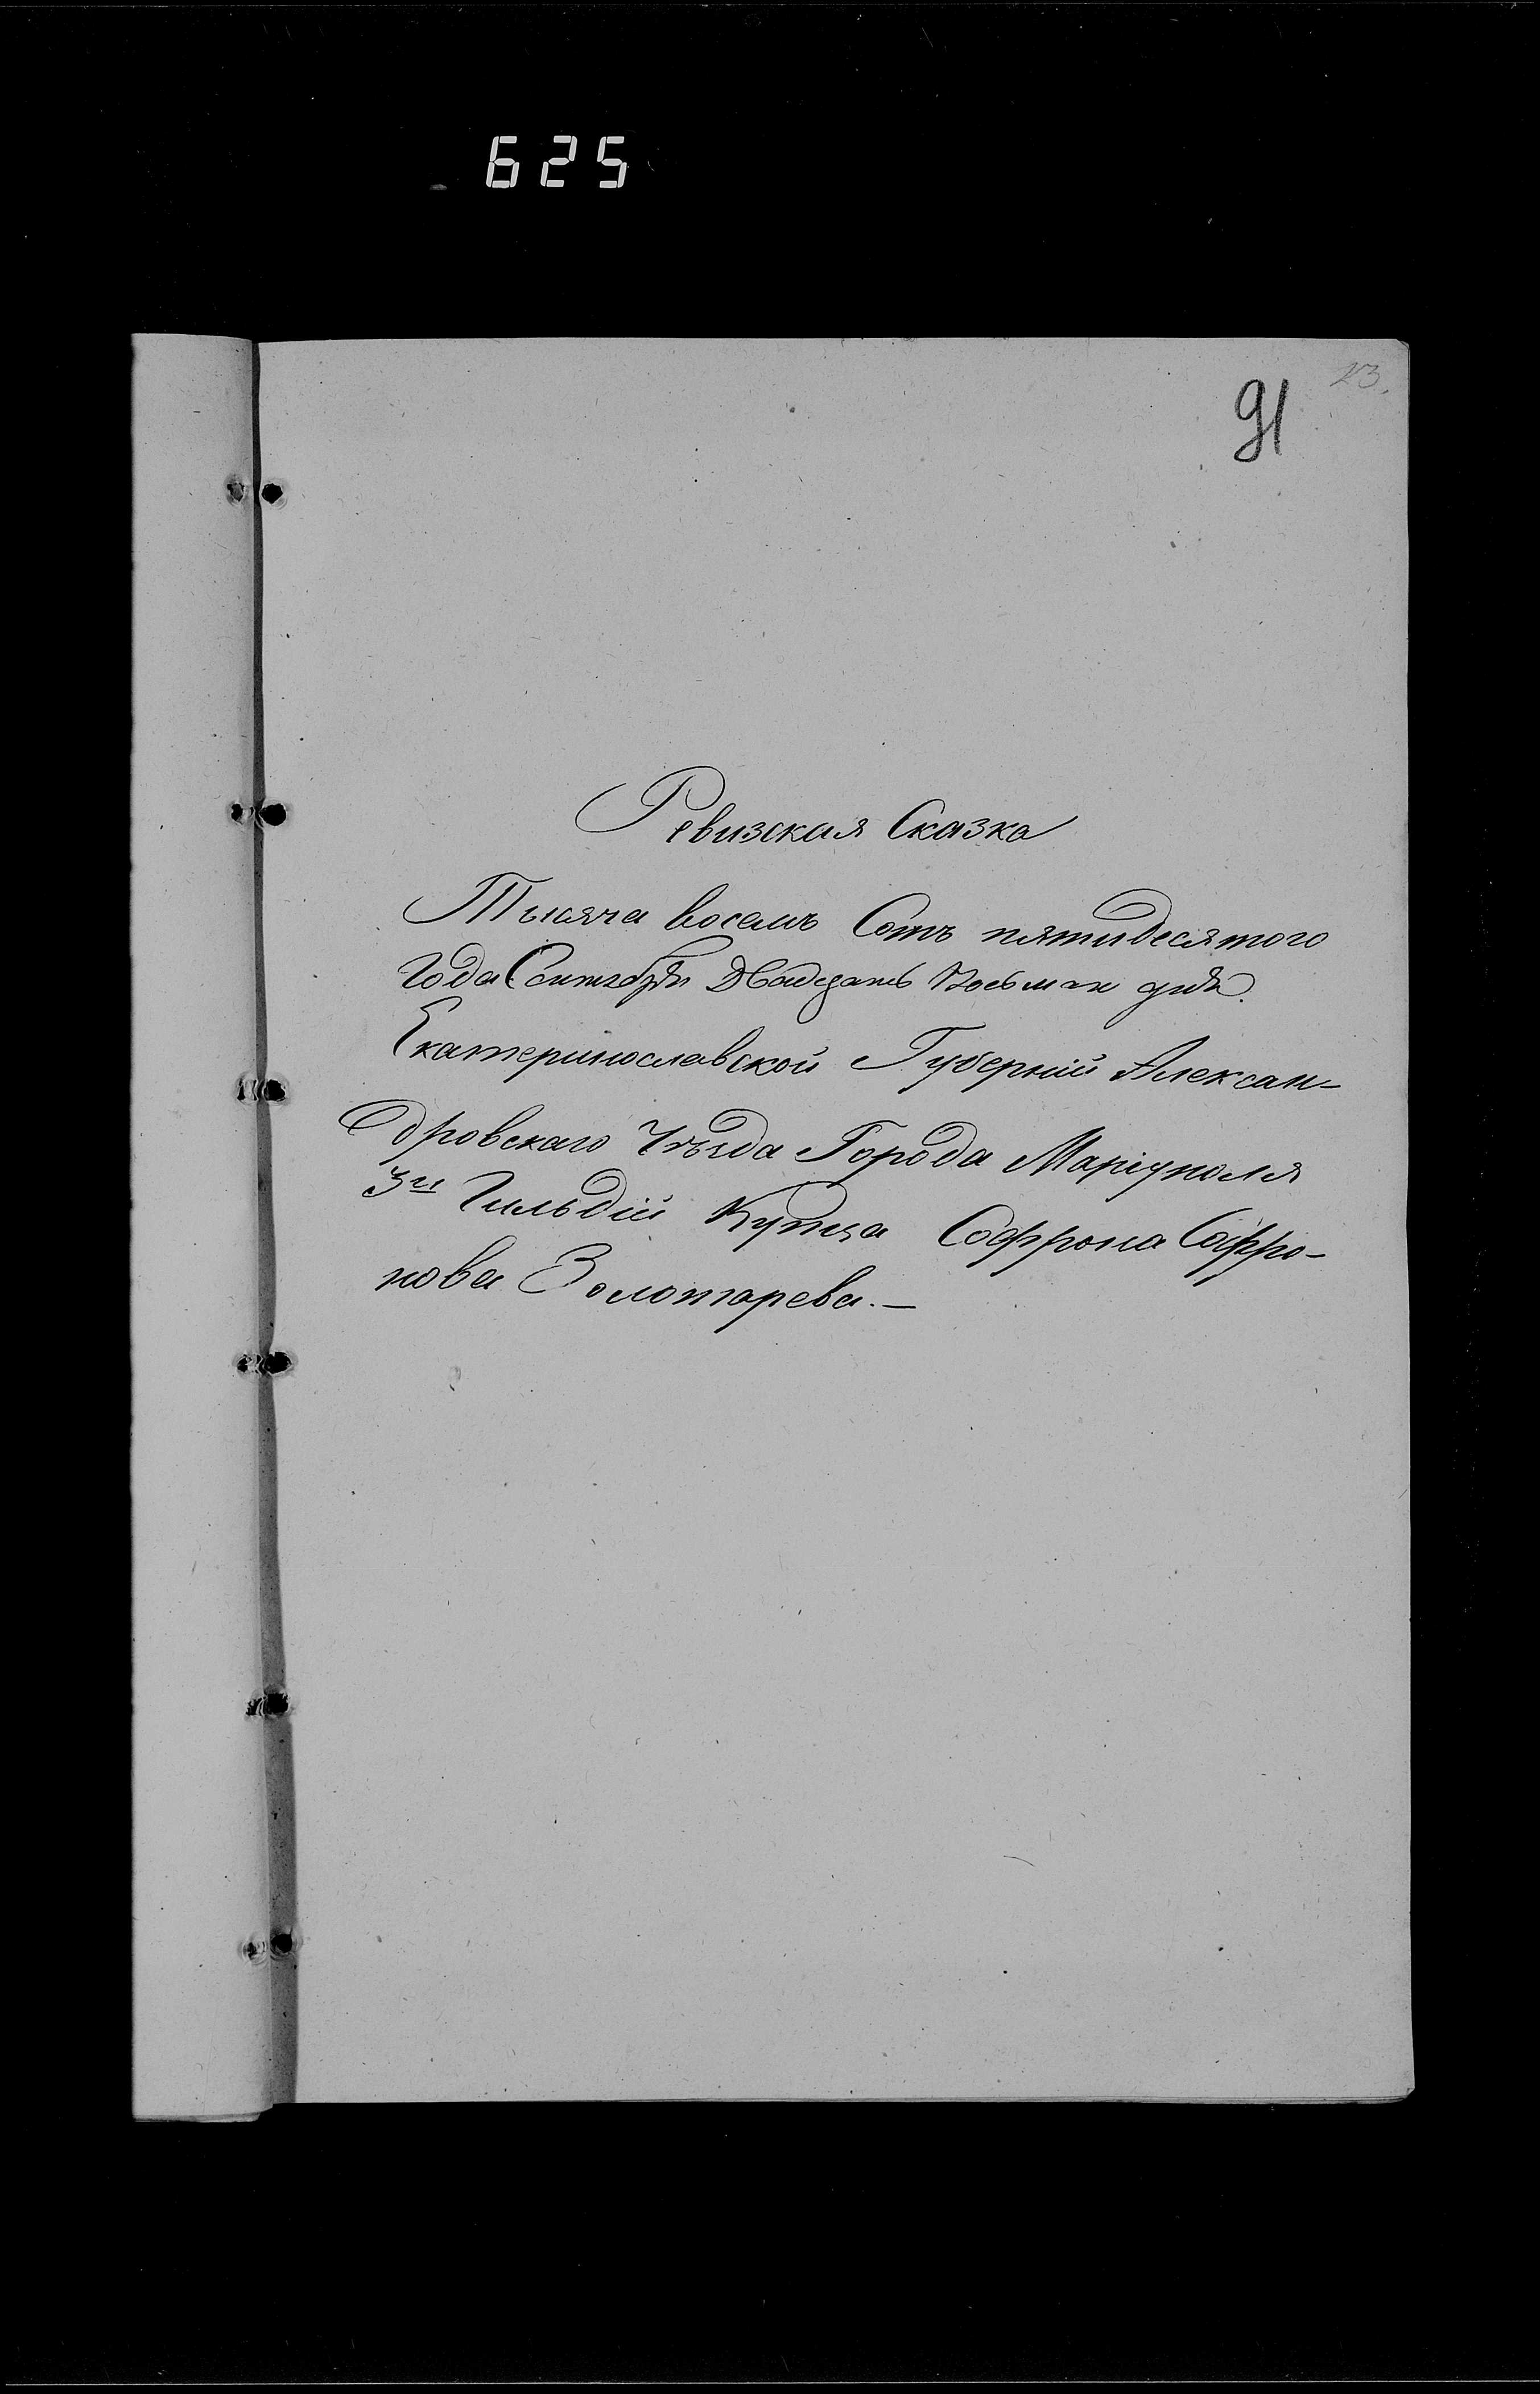 625
23.
91
Ревизская Сказка
Тысяча восемь Сотъ пятидесятого
Года Сентября Двадцать Восьмаго дня.
Екатеринославской Губерніи Алексан-
дровскаго Уѣзда Города Маріуполя
3й Гильдіи Купца Софрона Софро-
нова Золотарева.—